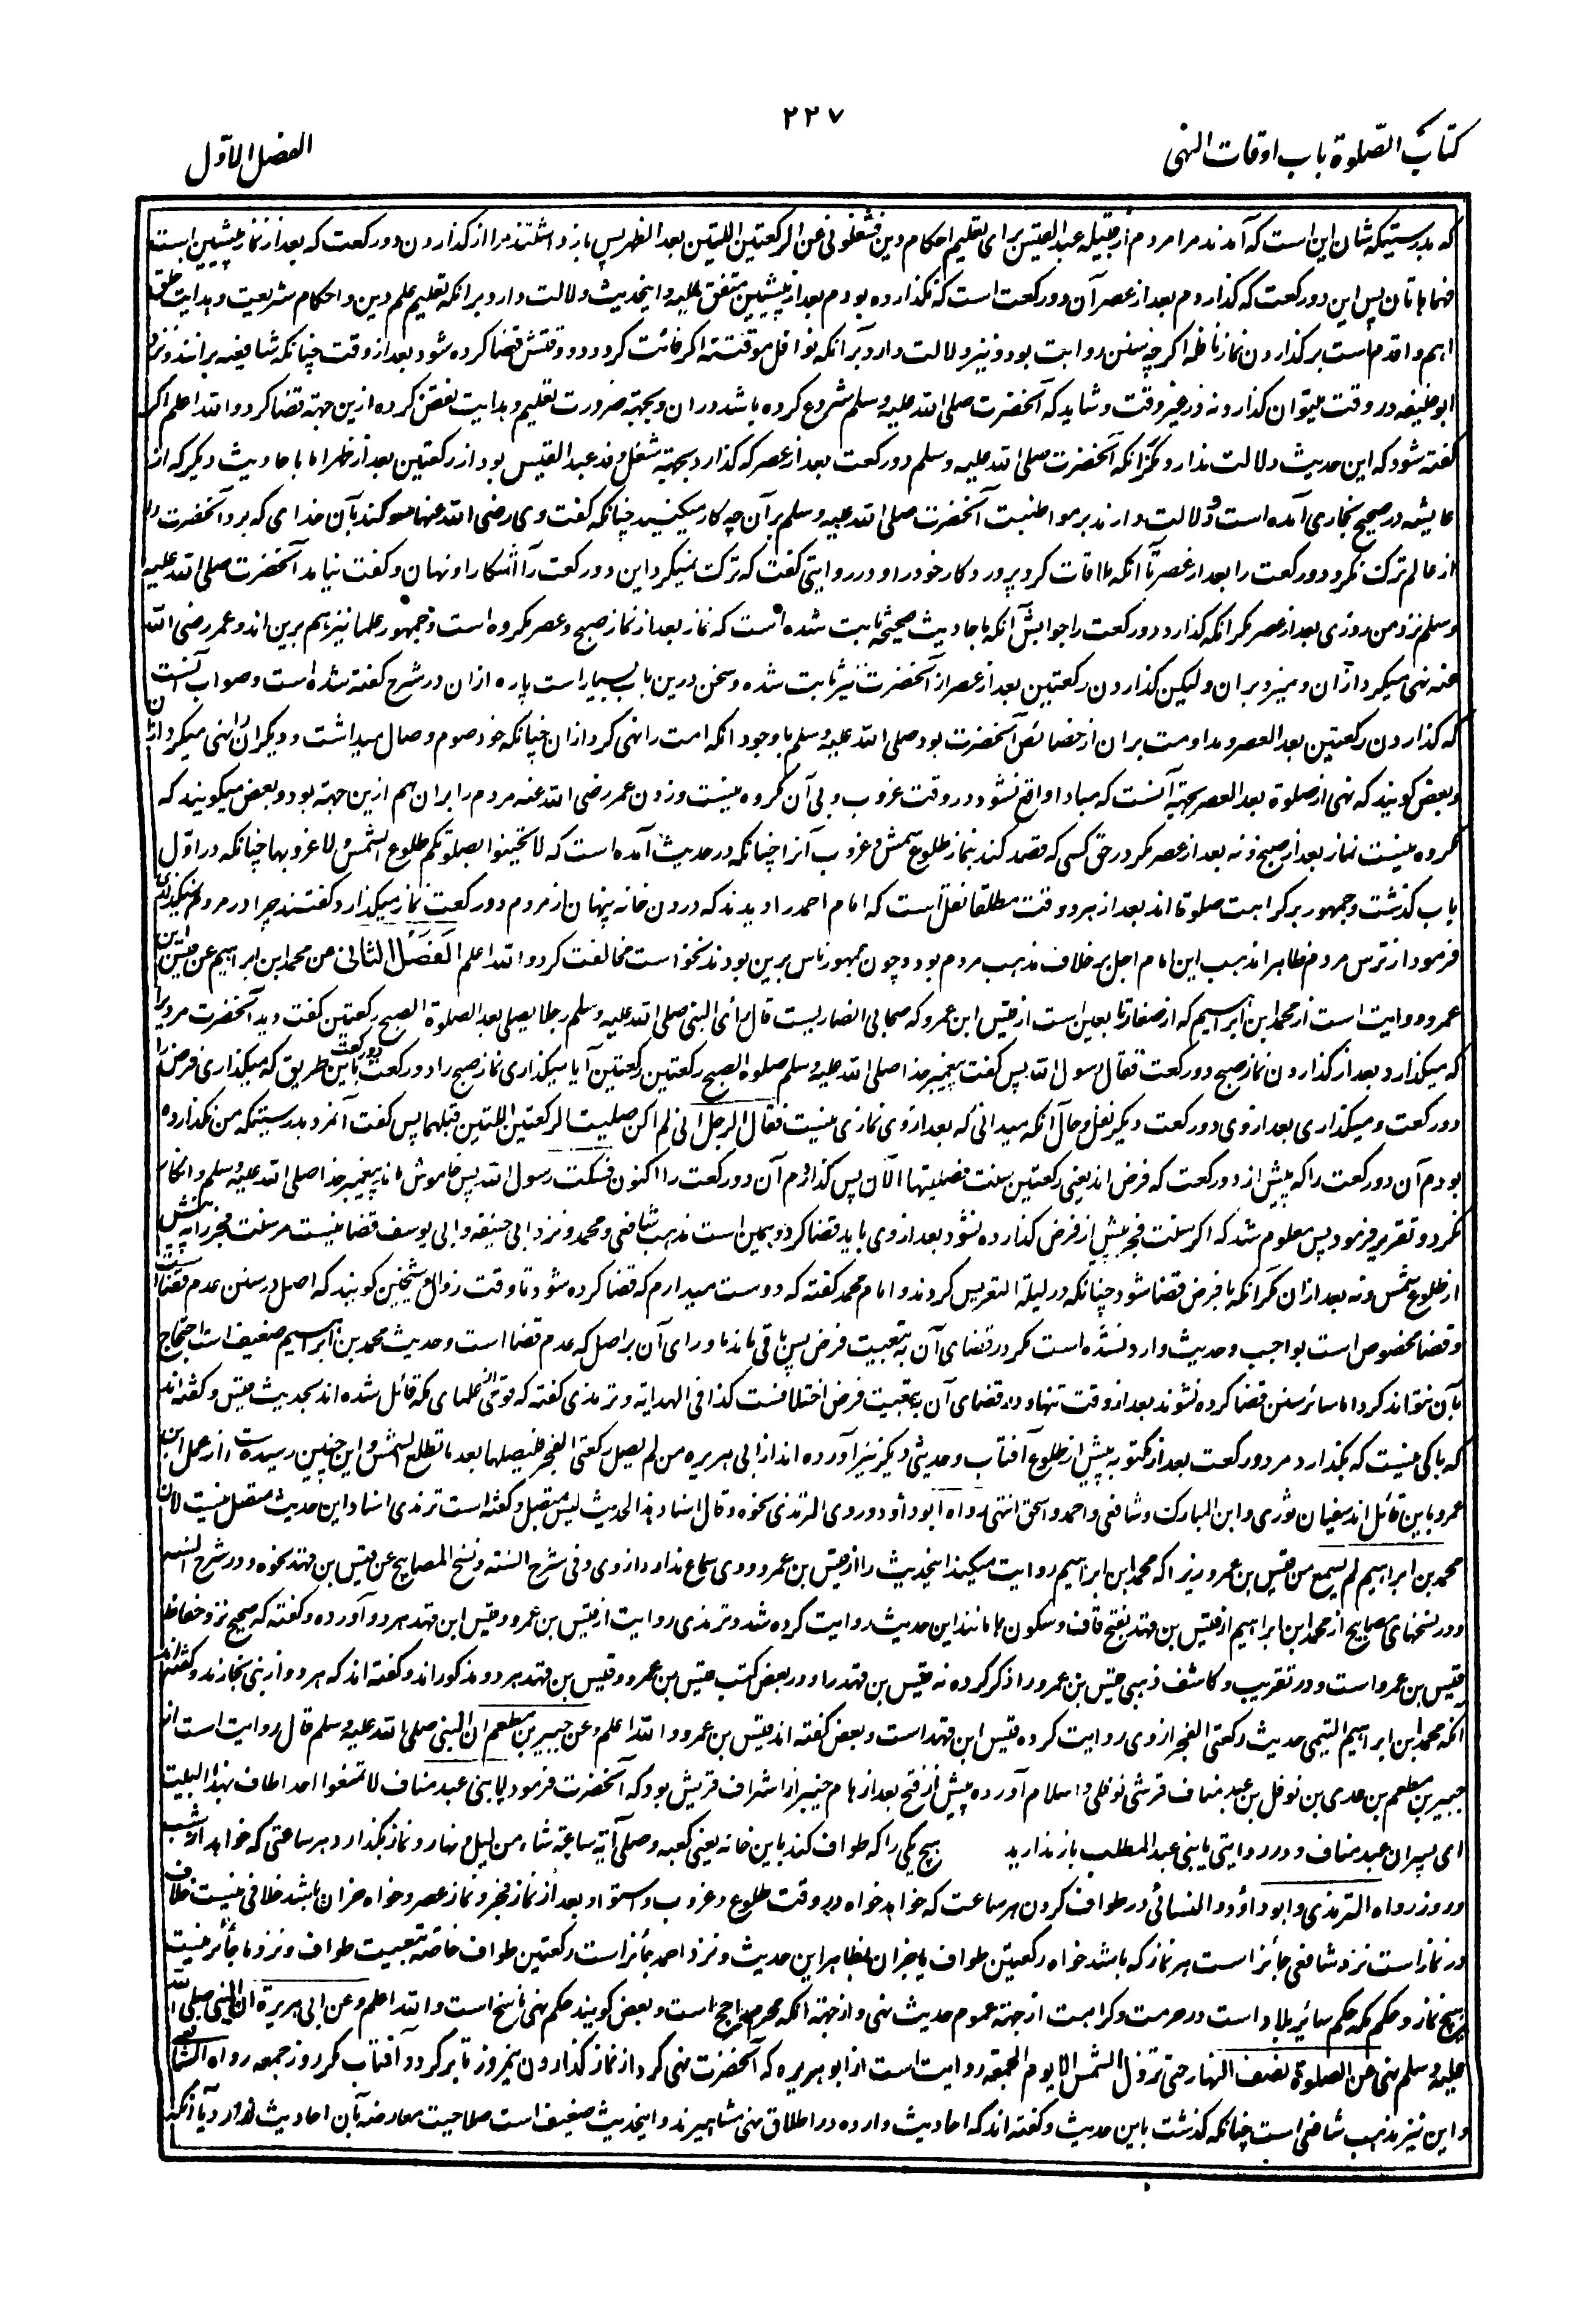 ۲۲۷
کتاب الصّلوة باب اوقات النهی
الفصل الاوّل
که بدرستیکه شان این است که آمدند مرا مردم از قبیله عبد القیس برای تعلیم احکام دین فشغلونی عن الرکعتین اللیتین بعد الظهر پس باز داشتند مرا از گذاردن دو رکعت که بعد از نماز پیشین است
فهما هاتان پس این دو رکعت که گذاردم بعد از عصر آن دو رکعت است که نگذارده بودم بعد از پیشین متفق علیه و اینحدیث دلالت دارد برانکه تعلیم علم دین و احکام شریعت و هدایت خلق
اهم و اقدم است بر گذاردن نماز نافله اگرچه سنن رواتب بود و نیز دلالت دارد برانکه نوافل موقتته اگر فائت گردد در وقتش قضا کرده شود بعد از وقت چنانکه شافعیه برانند و نزد
ابوحنیفه در وقت میتوان گذارد نه در غیر وقت و شاید که آنحضرت صلی الله علیه وسلم شروع کرده باشد دران و بجهته ضرورت تعلیم و هدایت نقض کرده ازین جهته قضا کرد والله اعلم اگر
گفته شود که این حدیث دلالت ندارد مگر آنکه آنحضرت صلی الله علیه وسلم دو رکعت بعد از عصر که گذارد بجهته شغل وفد عبد القیس بود از رکعتین بعد از ظهر اما با حادیث دیگر که از
عایشه در صحیح بخاری آمده است دلالت دارند بر مواظبت آنحضرت صلی الله علیه وسلم بر آن چه کار میکنید چنانکه گفت وی رضی الله عنها سوگند بآن خدای که برد آنحضرت را
از عالم ترک نکرد دو رکعت را بعد از عصر تا آنکه ملاقات کرد پرورد کار خود را و در روایتی گفت که ترک نمیکرد این دو رکعت را آشکارا و نهان و گفت نیامد آنحضرت صلی الله علیه
وسلم نزد من روزی بعد از عصر مگر آنکه گذارد دو رکعت را جوابش آنکه باحادیث صحیحه ثابت شده است که نماز بعد از نماز صبح و عصر مکروه است و جمهور علما نیز هم برین اند و عمر رضی الله
عنه نهی میکرد ازان و میزد بران ولیکن گذاردن رکعتین بعد از عصر از آنحضرت نیز ثابت شده و سخن درین باب بسیار است پاره ازان در شرح گفته شده است و صواب آنست
که گذاردن رکعتین بعد العصر و مداومت بران از خصائص آنحضرت بود صلی الله علیه وسلم با وجود انکه امت را نهی کرد ازان چنانکه خود صوم وصال میداشت و دیگران را نهی میکرد ازان
و بعض گویند که نهی از صلوة بعد العصر بجهته آنست که مبادا واقع نشود در وقت غروب و بی آن مکروه نیست و زدن عمر رضی الله عنه مردم را بران هم ازین جهته بود و بعض میگویند که
مکروه نیست نماز بعد از صبح و نه بعد از عصر مگر در حق کسی که قصد کند بنماز طلوع شمس و غروب آنرا چنانکه در حدیث آمده است که لا تحینوا بصلوتکم طلوع الشمس ولا غروبها چنانکه در اوّل
باب گذشت و جمهور بر کراهت صلوة اند بعد از هر دو وقت مطلقا نقل است که امام احمد را دیدند که درون خانه پنهان از مردم دو رکعت نماز میگذارد گفتند چرا در مردم نمیگذاری
فرمود از ترس مردم ظاهرا مذهب این امام اجل بر خلاف مذهب مردم بود و چون جمهور ناس برین بودند نخواست مخالفت کرد والله اعلم الفصل الثانی عن محمد ابن ابراهیم عن قیس ابن
عمرو روایت است از محمد ابن ابراهیم که از صغار تابعین است از قیس ابن عمرو که صحابی انصاریست قال رأی النبی صلی الله علیه وسلم رجلا یصلی بعد الصلوة الصبح رکعتین گفت دید آنحضرت مردیرا
که میگذارد بعد از گذاردن نماز صبح دو رکعت فقال رسول الله پس گفت پیغمبر خدا صلی الله علیه وسلم صلوة الصبح رکعتین رکعتین آیا میگذاری نماز صبح را دو رکعت دو رکعت باین طریق که میگذاری فرض را
دو رکعت و میگذاری بعد از وی دو رکعت دیگر نفل و حال آنکه میدانی که بعد از وی نمازی نیست فقال الرجل انی لم اکن صلیت الرکعتین اللتین قبلهما پس گفت آنمرد بدرستیکه من نگذارده
بودم آن دو رکعت را که پیش از دو رکعت که فرض اند یعنی رکعتین سنت فصلیتهما الآن پس گذاردم آن دو رکعت را اکنون فسکت رسول الله پس خاموش ماند پیغمبر خدا صلی الله علیه وسلم و انکار
نکرد و تقریر فرمود پس معلوم شد که اگر سنت فجر پیش از فرض گذارده نشود بعد از وی باید قضا کرد و همین است مذهب شافعی و محمد و نزد ابی حنیفه و ابی یوسف قضا نیست مر سنت فجر را نه پیش
از طلوع شمس و نه بعد ازان مگر آنکه با فرض قضا شود چنانکه در لیلة التعریس کردند و امام محمد گفته که دوست میدارم که قضا کرده شود تا وقت زوال و شیخین گویند که اصل در سنن عدم قضا است
و قضا مخصوص است بواجب و حدیث وارد نشده است مگر در قضای آن به تبعیت فرض پس باقی ماند ماورای آن بر اصل که عدم قضا است و حدیث محمد بن ابراهیم ضعیف است احتجاج
بآن نتواند کرد اما سائر سنن قضا کرده نشوند بعد از وقت تنها و در قضای آن به تبعیت فرض اختلافست کذا فی الهدایه و ترمذی گفته که قومی از علمای مکه قائل شده اند بحدیث قیس و گفته اند
که باکی نیست که بگذارد مرد دو رکعت بعد از مکتوبه پیش از طلوع آفتاب و حدیثی دیگر نیز آورده اند از ابی هریره من لم یصل رکعتی الفجر فلیصلها بعد ما تطلع الشمس و این چنین رسیده است از عمل ابن
عمر و باین قائل اند سفیان ثوری و ابن المبارک و شافعی و احمد و اسحق انتهی رواه ابوداؤد و روی الترمذی نحوه و قال اسناد هذا الحدیث لیس بمتصل و گفته است ترمذی اسناد این حدیث متصل نیست لان
محمد بن ابراهیم لم یسمع من قیس بن عمرو زیرا که محمد ابن ابراهیم روایت میکند اینحدیث را از قیس بن عمرو و وی سماع ندارد از وی و فی شرح السنه و نسخ المصابیح عن قیس بن قهد نحوه و در شرح السنه
و در نسخهای مصابیح از محمد ابن ابراهیم از قیس بن قهد بفتح قاف و سکون ها مانند این حدیث روایت کرده شد و ترمذی روایت از قیس بن عمرو و قیس ابن قهد هر دو آورده و گفته که صحیح نزد حفاظ
قیس بن عمرو است و در تقریب و کاشف ذهبی قیس بن عمرو را ذکر کرده نه قیس بن قهد را و در بعض کتب قیس بن عمرو و قیس بن قهد هر دو مذکور اند و گفته اند که هر دو از بنی نجارند و گفته اند
آنکه محمد ابن ابراهیم التیمی حدیث رکعتی الفجر از وی روایت کرده قیس ابن قهد است و بعض گفته اند قیس بن عمرو والله اعلم وعن جبیر بن مطعم ان النبی صلی الله علیه وسلم قال روایت است از
جبیر بن مطعم بن عدی بن نوفل بن عبد مناف قرشی نوفلی و اسلام آورده پیش از فتح بعد از عام خیبر از اشراف قریش بود که آنحضرت فرمود یا بنی عبد مناف لا تمنعوا احدا طاف بهذا البیت
ای پسران عبد مناف و در روایتی یا بنی عبد المطلب باز ندارید هیچ یکی را که طواف کند باین خانه یعنی کعبه وصلی آیة ساعة شاء من لیل و نهار و نماز بگذارد هر ساعتی که خواهد از شب
و روز رواه الترمذی و ابوداؤد و النسائی در طواف کردن هر ساعت که خواهد خواه در وقت طلوع و غروب و استوا و بعد از نماز فجر و نماز عصر و خواه جزان باشد خلافی نیست خلاف
در نماز است نزد شافعی جائز است هر نماز که باشد خواه رکعتین طواف یا جزان بظاهر این حدیث و نزد احمد جائز است رکعتین طواف خاصّه تبعیت طواف و نزد ما جائز نیست
هیچ نماز و حکم مکه حکم سائر بلاد است در حرمت و کراهت از جهته عموم حدیث نهی و از جهته آنکه محرم راجح است و بعض گویند حکم نهی ناسخ است والله اعلم وعن ابی هریرة ان النبی صلی الله
علیه وسلم نهی عن الصلوة نصف النهار حتی تزول الشمس الا یوم الجمعة روایت است از ابو هریره که آنحضرت نهی کرد از نماز گذاردن نیمروز تا برگردد آفتاب مگر روز جمعه رواه الشافعی
و این نیز مذهب شافعی است چنانکه گذشت باین حدیث و گفته اند که احادیث وارده در اطلاق نهی مشاهیرند و اینحدیث ضعیف است صلاحیت معارضه بآن احادیث ندارد یا آنکه